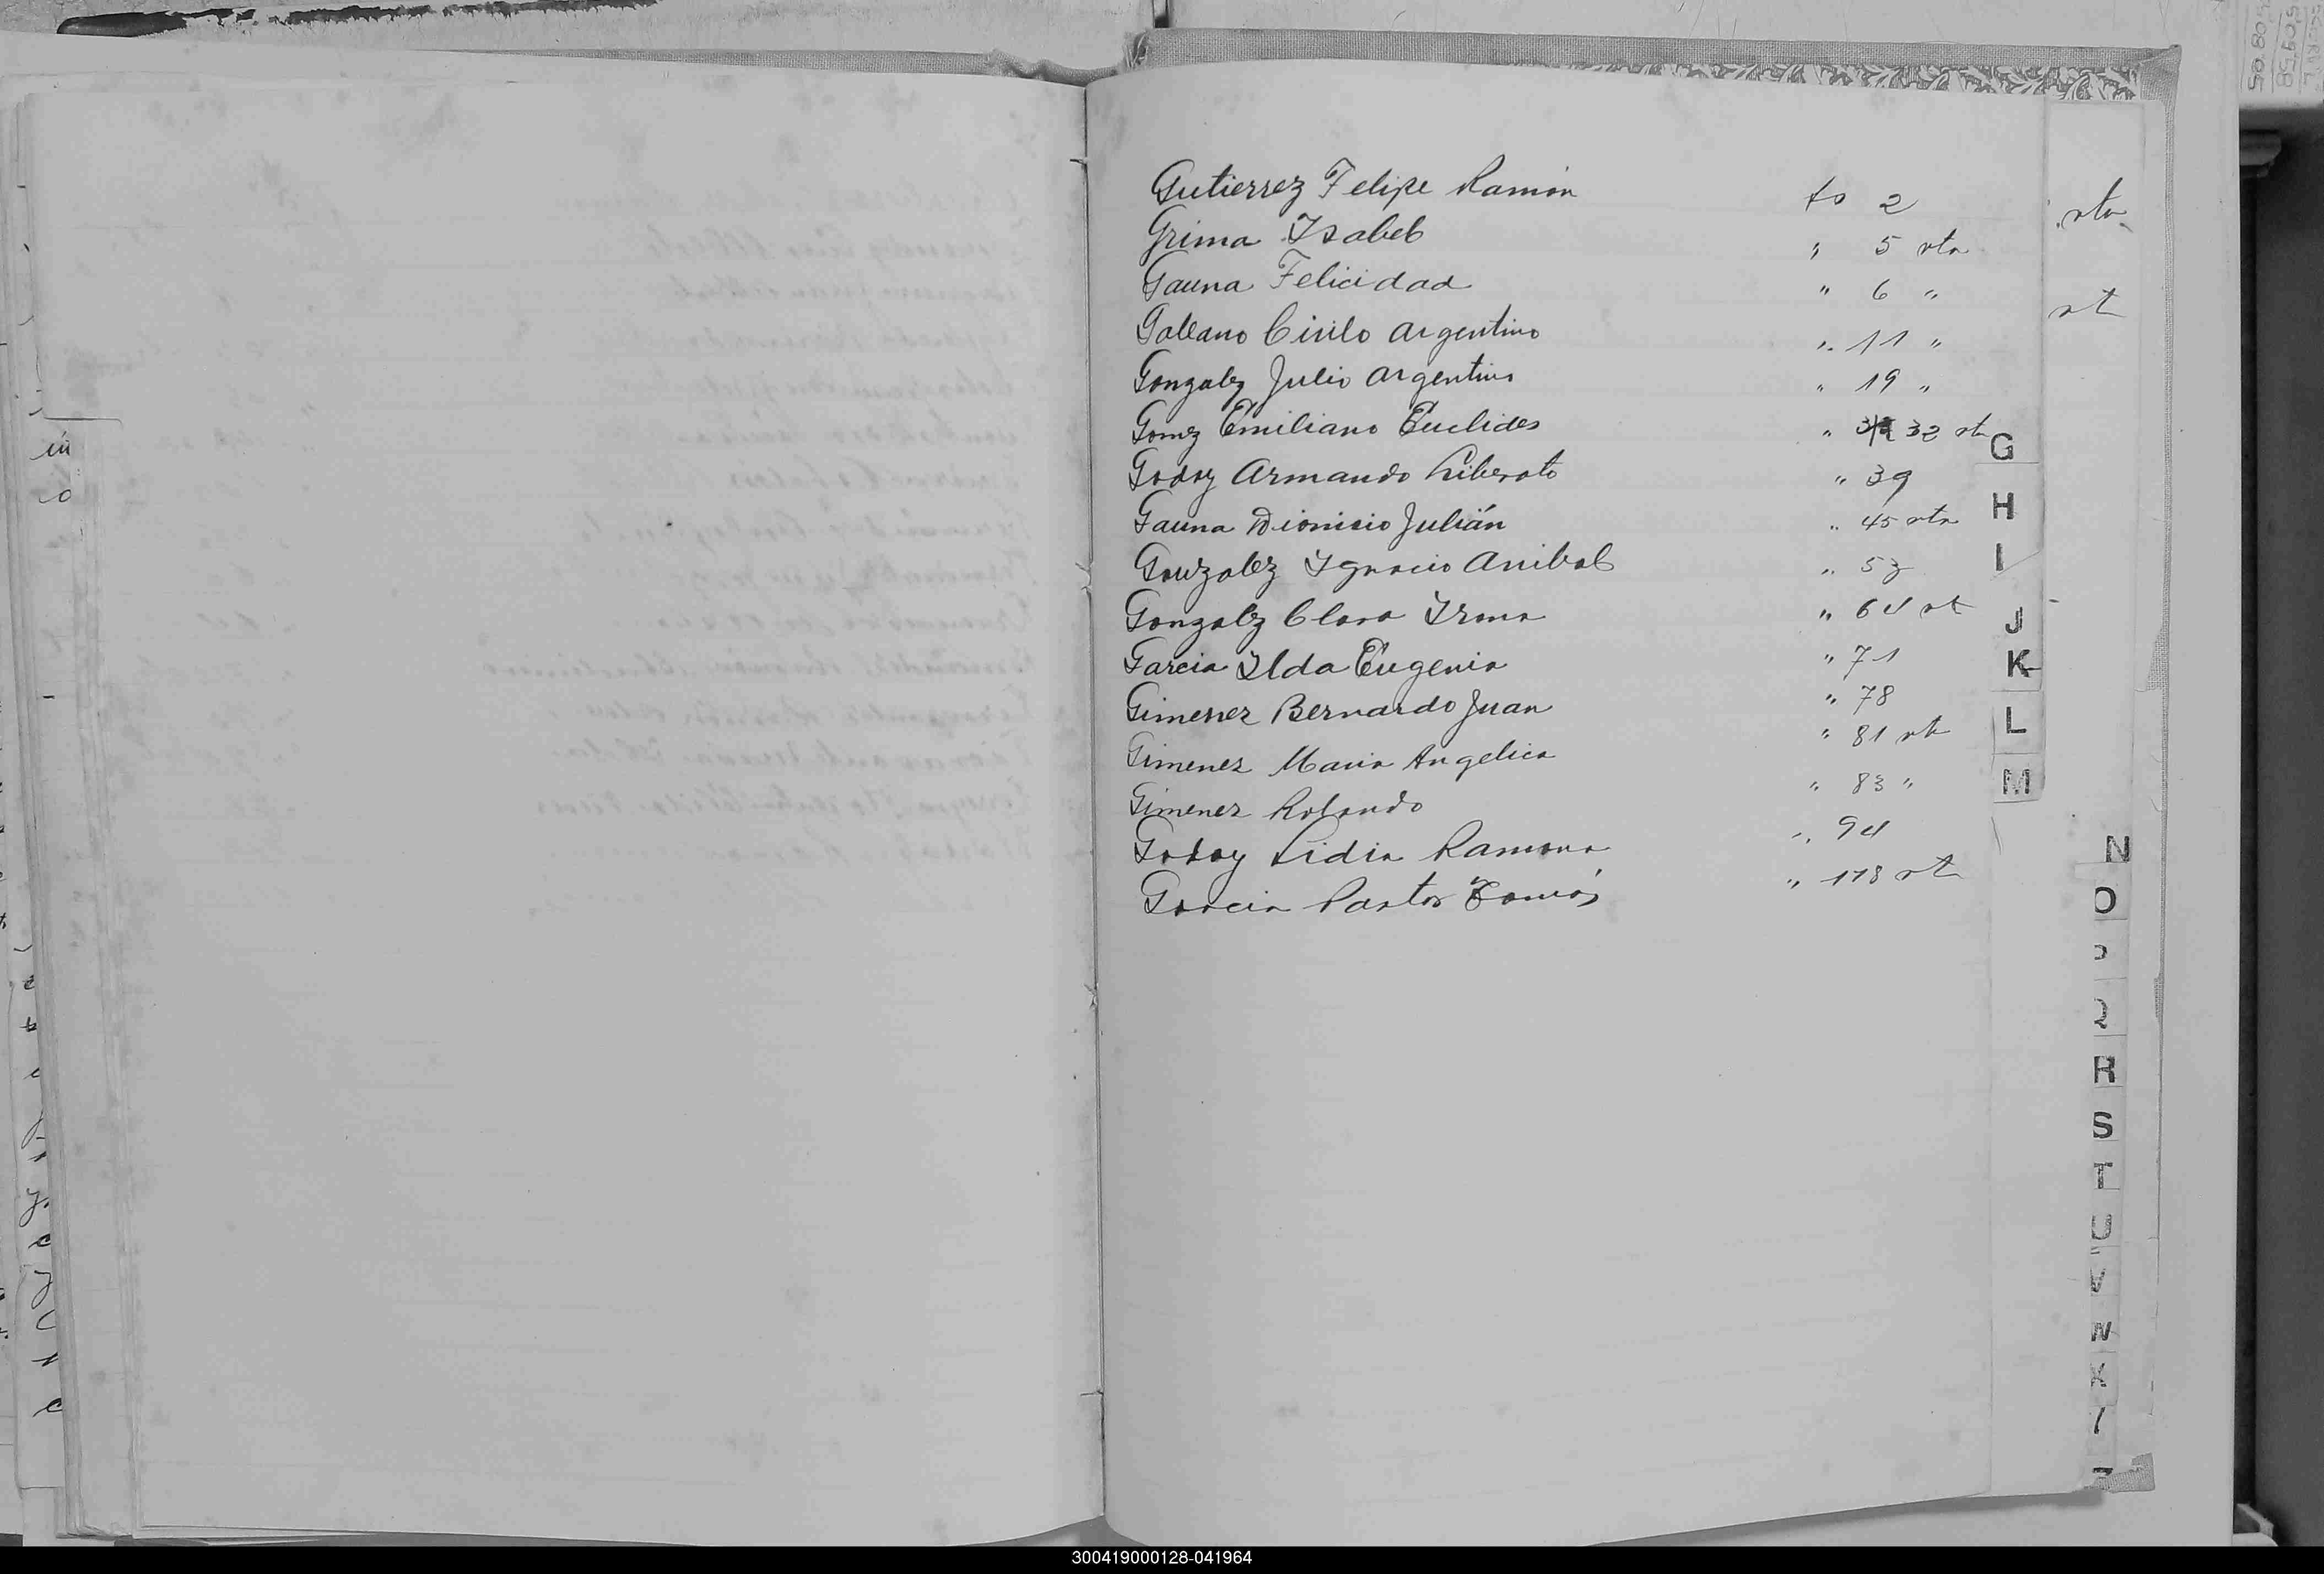 Gutierrez Felipe Ramón fo 2
Grima Isabel " 5 vta
Gauna Felicidad " 6 "
Galeano Cirilo Argentino " 11 "
Gonzalez Julio Argentino " 19 "
Gomez Emiliano Euclides " 32 vta
Godoy Armando Liberato " 39
Gauna Dionicio Julián " 45 vta
Gonzalez Ygnacio Anibal " 53
Gonzalez Clara Irma " 64 vt
Garcia Ilda Eugenia " 71
Gimenez Bernardo Juan " 78
Gimenez Maria Angelica " 81 vta
Gimenez Rolando " 83 "
Godoy Lidia Ramona " 94
Garcia Pastor Tomás " 118 vt
vta
vt
G
H
I
J
K
L
M
N
O
P
Q
R
S
T
U
V
W
X
300419000128-041964